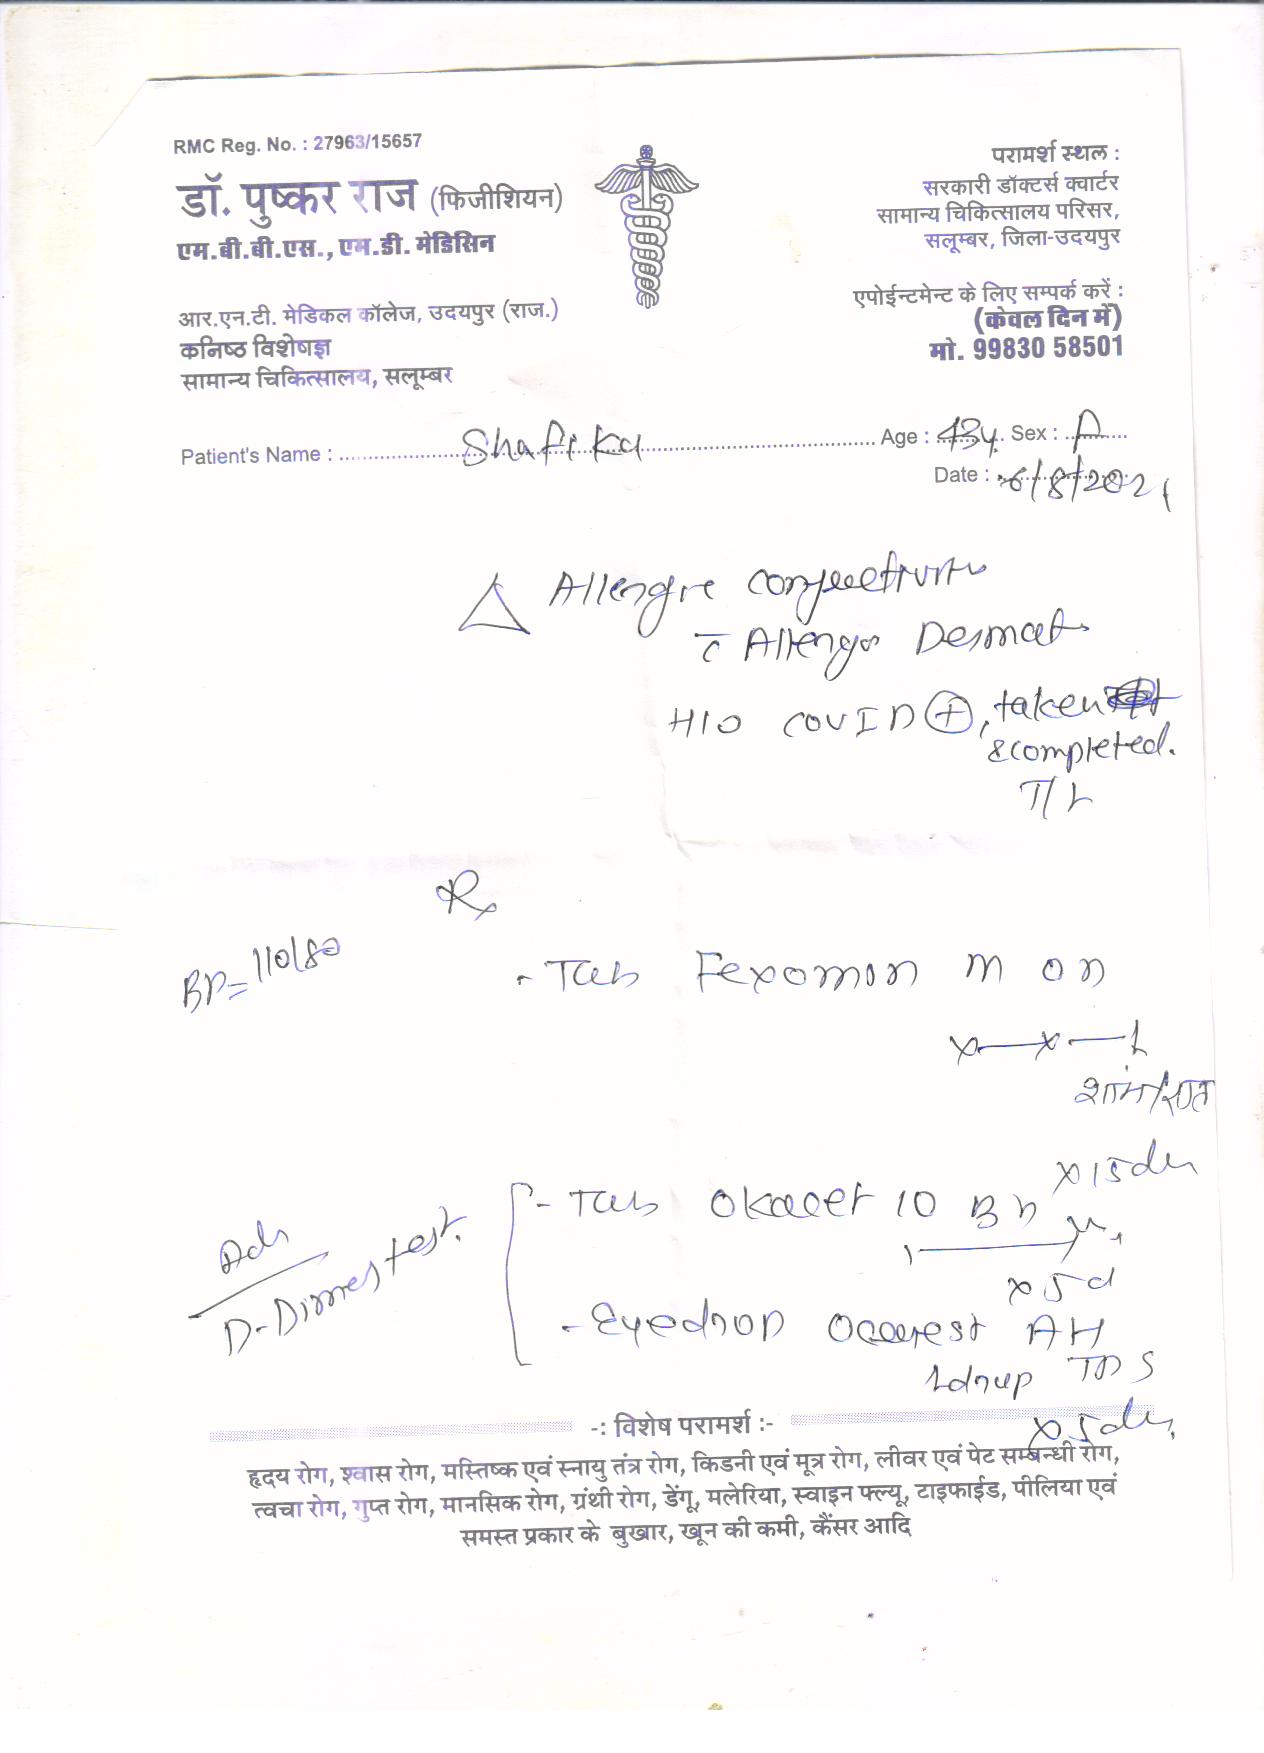 RMC Reg. No. : 27963/15657
डॉ. पुष्कर राज (फिजीशियन)
एम.बी.बी.एस., एम.डी. मेडिसिन
आर.एन.टी. मेडिकल कॉलेज, उदयपुर (राज.)
कनिष्ठ विशेषज्ञ
सामान्य चिकित्सालय, सलूम्बर
परामर्श स्थल :
सरकारी डॉक्टर्स क्वार्टर
सामान्य चिकित्सालय परिसर,
सलूम्बर, जिला-उदयपुर
एपोईन्टमेन्ट के लिए सम्पर्क करें :
(केवल दिन में)
मो. 99830 58501
Patient's Name : Shafika Age : 43y. Sex :
Date : 6/8/2021
Allergic conjuctivitis
c̄ Allergo Dermat
H/O COVID (+), taken
& completed.
T/t
Rx
BP=110/80
- Tab Fexomon M on
x—x—1
शाम/रात
x 15 day
- Tab Okacet 10
x 5d
- Eyedrop Ocurest AH
1drop TDS
x 5day
Adv
D-Dimer test.
-: विशेष परामर्श :-
हृदय रोग, श्वास रोग, मस्तिष्क एवं स्नायु तंत्र रोग, किडनी एवं मूत्र रोग, लीवर एवं पेट सम्बन्धी रोग,
त्वचा रोग, गुप्त रोग, मानसिक रोग, ग्रंथी रोग, डेंगू, मलेरिया, स्वाइन फ्ल्यू, टाइफाईड, पीलिया एवं
समस्त प्रकार के बुखार, खून की कमी, कैंसर आदि